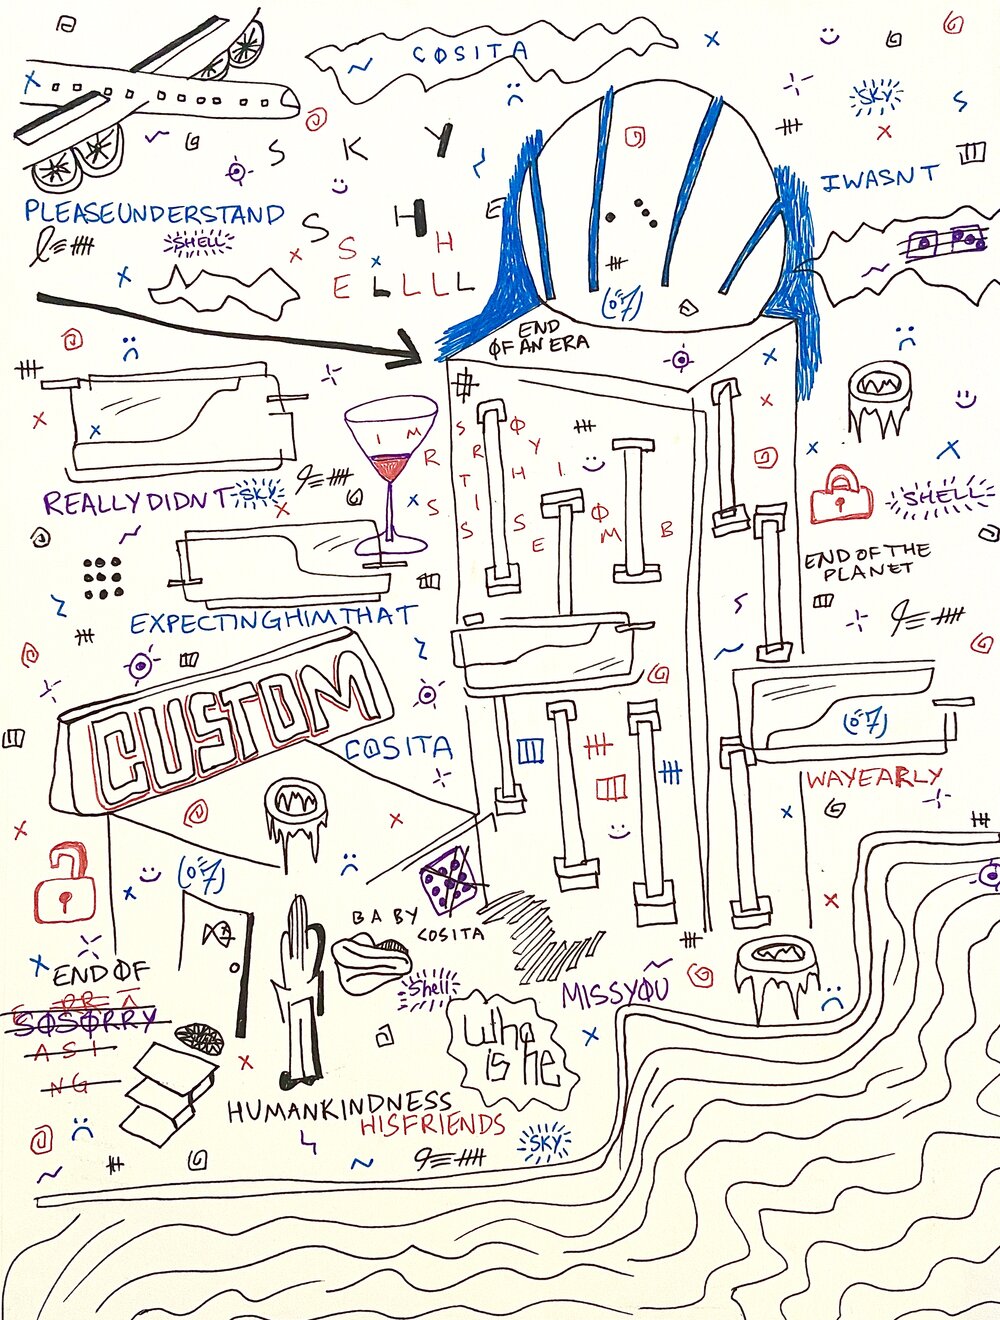 CØSITA
SKY
S K Y
IWASNT
PLEASEUNDERSTAND
SHELL
S H E
S H
E L L L L
(ö7)
END
ØF AN ERA
I M
S Ø
R R Y
T H I
S I
S S Ø
E M B
REALLYDIDNT
SKY
SHELL
END OF THE
PLANET
EXPECTINGHIMTHAT
CUSTOM
CØSITA
(ö7)
WAYEARLY
(ö7)
BABY
COSITA
END ØF
SØSØRRY
A S I
N G
Shell
MISSYØU
Who
is he
HUMANKINDNESS
HISFRIENDS
SKY